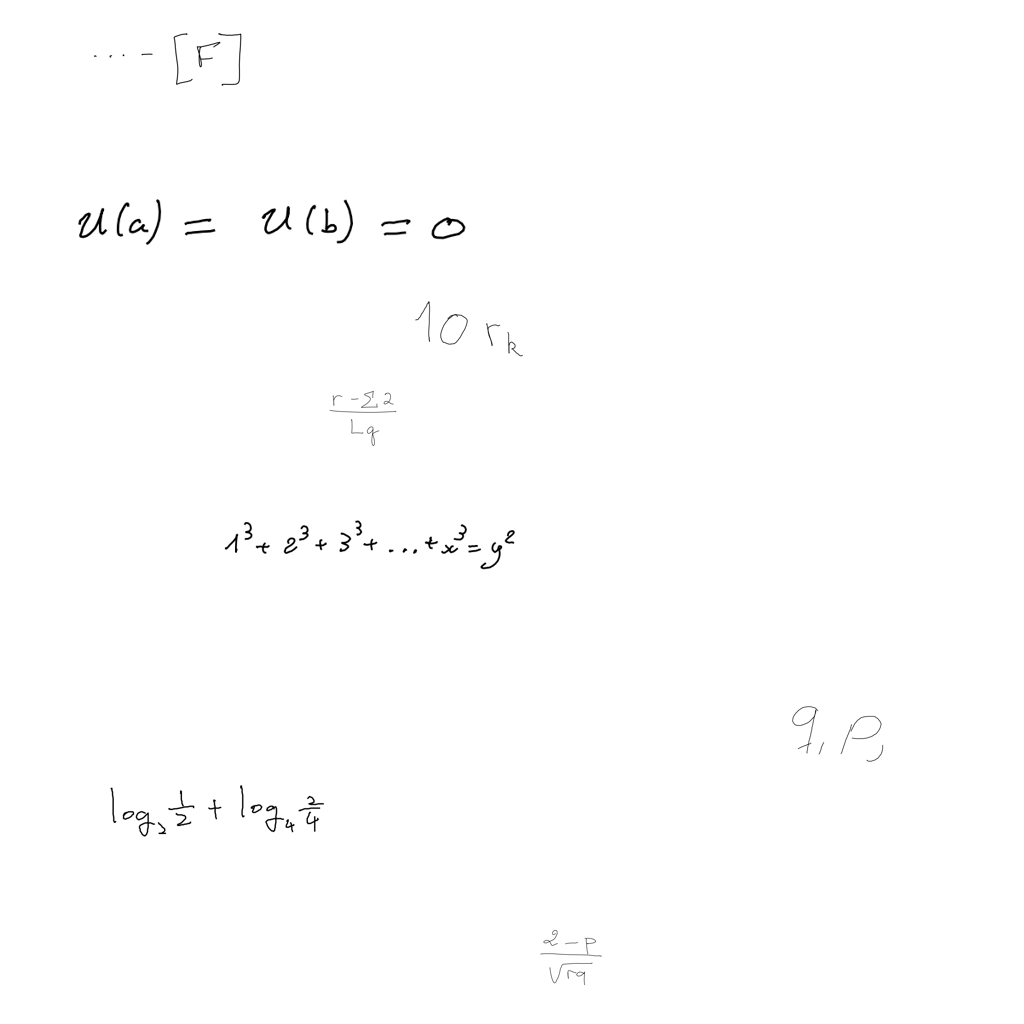 ... - [F]
u(a) = u(b) = 0
10 r_k
\frac{r - \Sigma 2}{L q}
1^3 + 2^3 + 3^3 + ... + x^3 = y^2
q, p,
\log_2 \frac{1}{2} + \log_4 \frac{2}{4}
\frac{2 - p}{\sqrt{rq}}